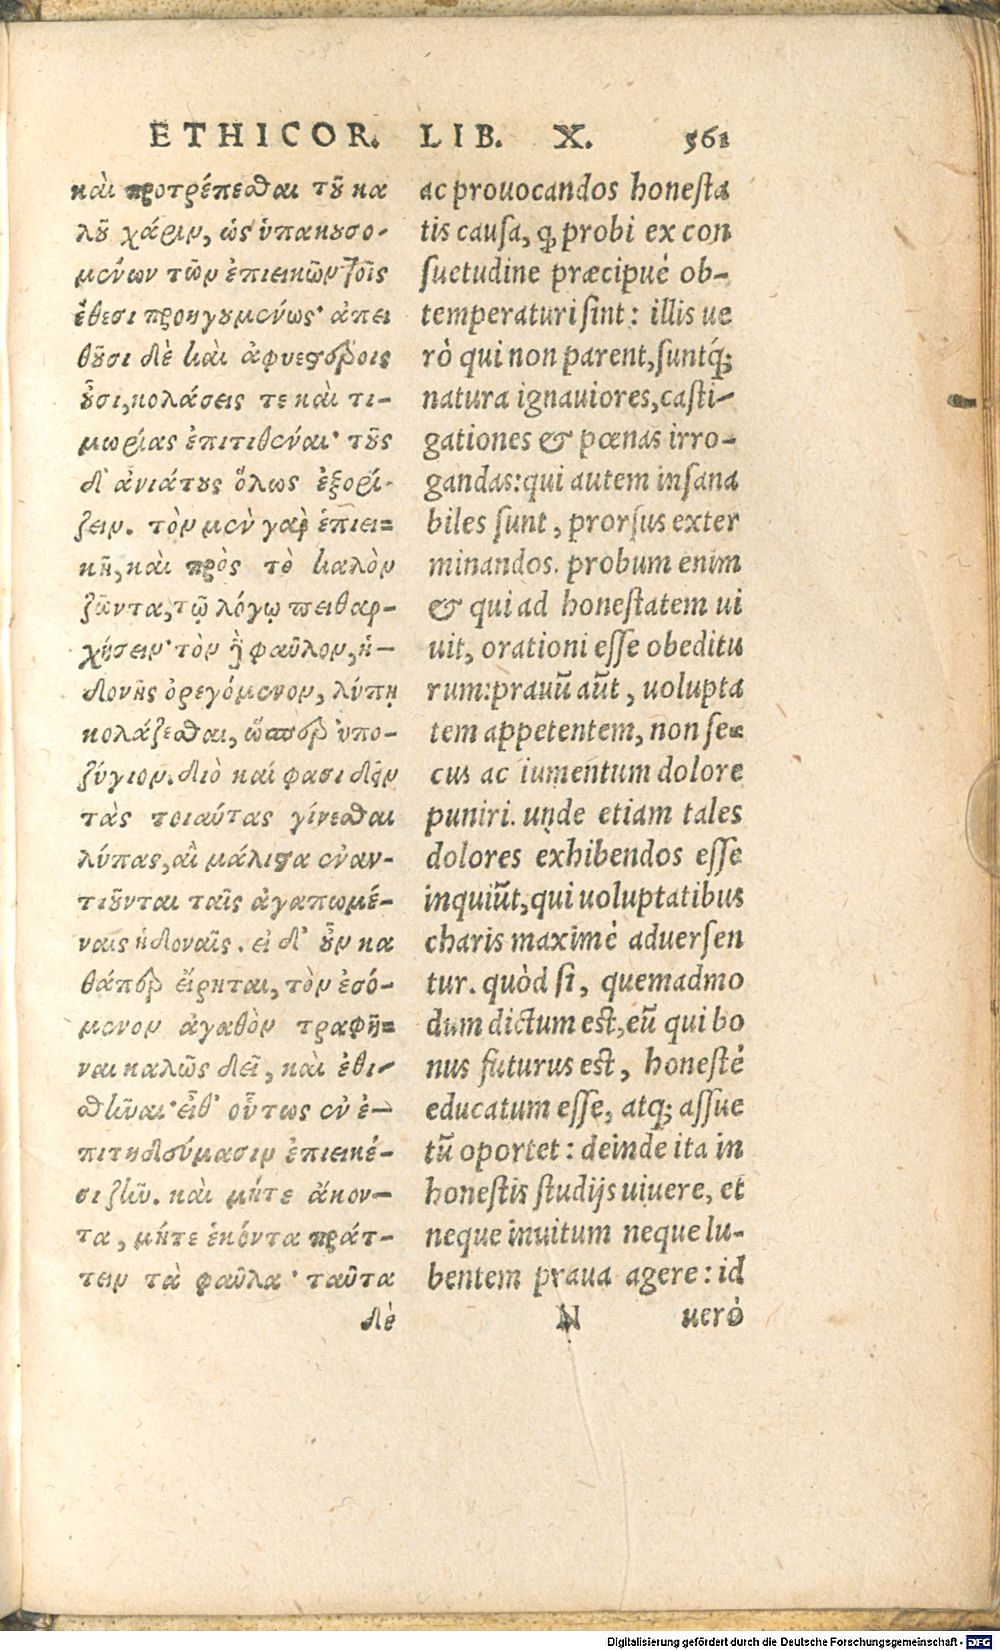 ETHICOR. LIB. X. 561
καὶ προτρέπεσθαι τοῦ κα
λοῦ χάριν, ὡς ὑπακουσο-
μένων τῶν ἐπιεικῶν τοῖς
ἔθεσι προηγουμένως· ἀπει
θοῦσι δὲ καὶ ἀφυεστέροις
οὖσι, κολάσεις τε καὶ τι-
μωρίας ἐπιτιθέναι· τοὺς
δ' ἀνιάτους ὅλως ἐξορί-
ζειν. τὸν μὲν γὰρ ἐπιει-
κῆ, καὶ πρὸς τὸ καλὸν
ζῶντα, τῷ λόγῳ πειθαρ-
χήσειν· τὸν δὲ φαῦλον, ἡ-
δονῆς ὀρεγόμενον, λύπῃ
κολάζεσθαι, ὥσπερ ὑπο-
ζύγιον. διὸ καί φασι δεῖν
τὰς τοιαύτας γίνεσθαι
λύπας, αἳ μάλιστα ἐναν-
τιοῦνται ταῖς ἀγαπωμέ-
ναις ἡδοναῖς. εἰ δ' οὖν κα
θάπερ εἴρηται, τὸν ἐσό-
μενον ἀγαθὸν τραφῆ-
ναι καλῶς δεῖ, καὶ ἐθι-
σθῆναι· εἶθ' οὕτως ἐν ἐ-
πιτηδεύμασιν ἐπιεικέ-
σι ζῆν. καὶ μήτε ἄκον-
τα, μήτε ἑκόντα πράτ-
τειν τὰ φαῦλα· ταῦτα
δὲ
ac prouocandos honesta
tis causa, ꝙ probi ex con
suetudine præcipué ob-
temperaturi sint: illis ue
rò qui non parent, suntq́;
natura ignauiores, casti-
gationes & pœnas irro-
gandas: qui autem insana
biles sunt, prorsus exter
minandos. probum enim
& qui ad honestatem ui
uit, orationi esse obeditu
rum: prauū aūt, uolupta
tem appetentem, non se-
cus ac iumentum dolore
puniri. unde etiam tales
dolores exhibendos esse
inquiūt, qui uoluptatibus
charis maximé aduersen
tur. quòd si, quemadmo
dum dictum est, eū qui bo
nus futurus est, honesté
educatum esse, atq; assue
tū oportet: deinde ita in
honestis studijs uiuere, et
neque inuitum neque lu-
bentem praua agere: id
N ueró
Digitalisierung gefördert durch die Deutsche Forschungsgemeinschaft - DFG